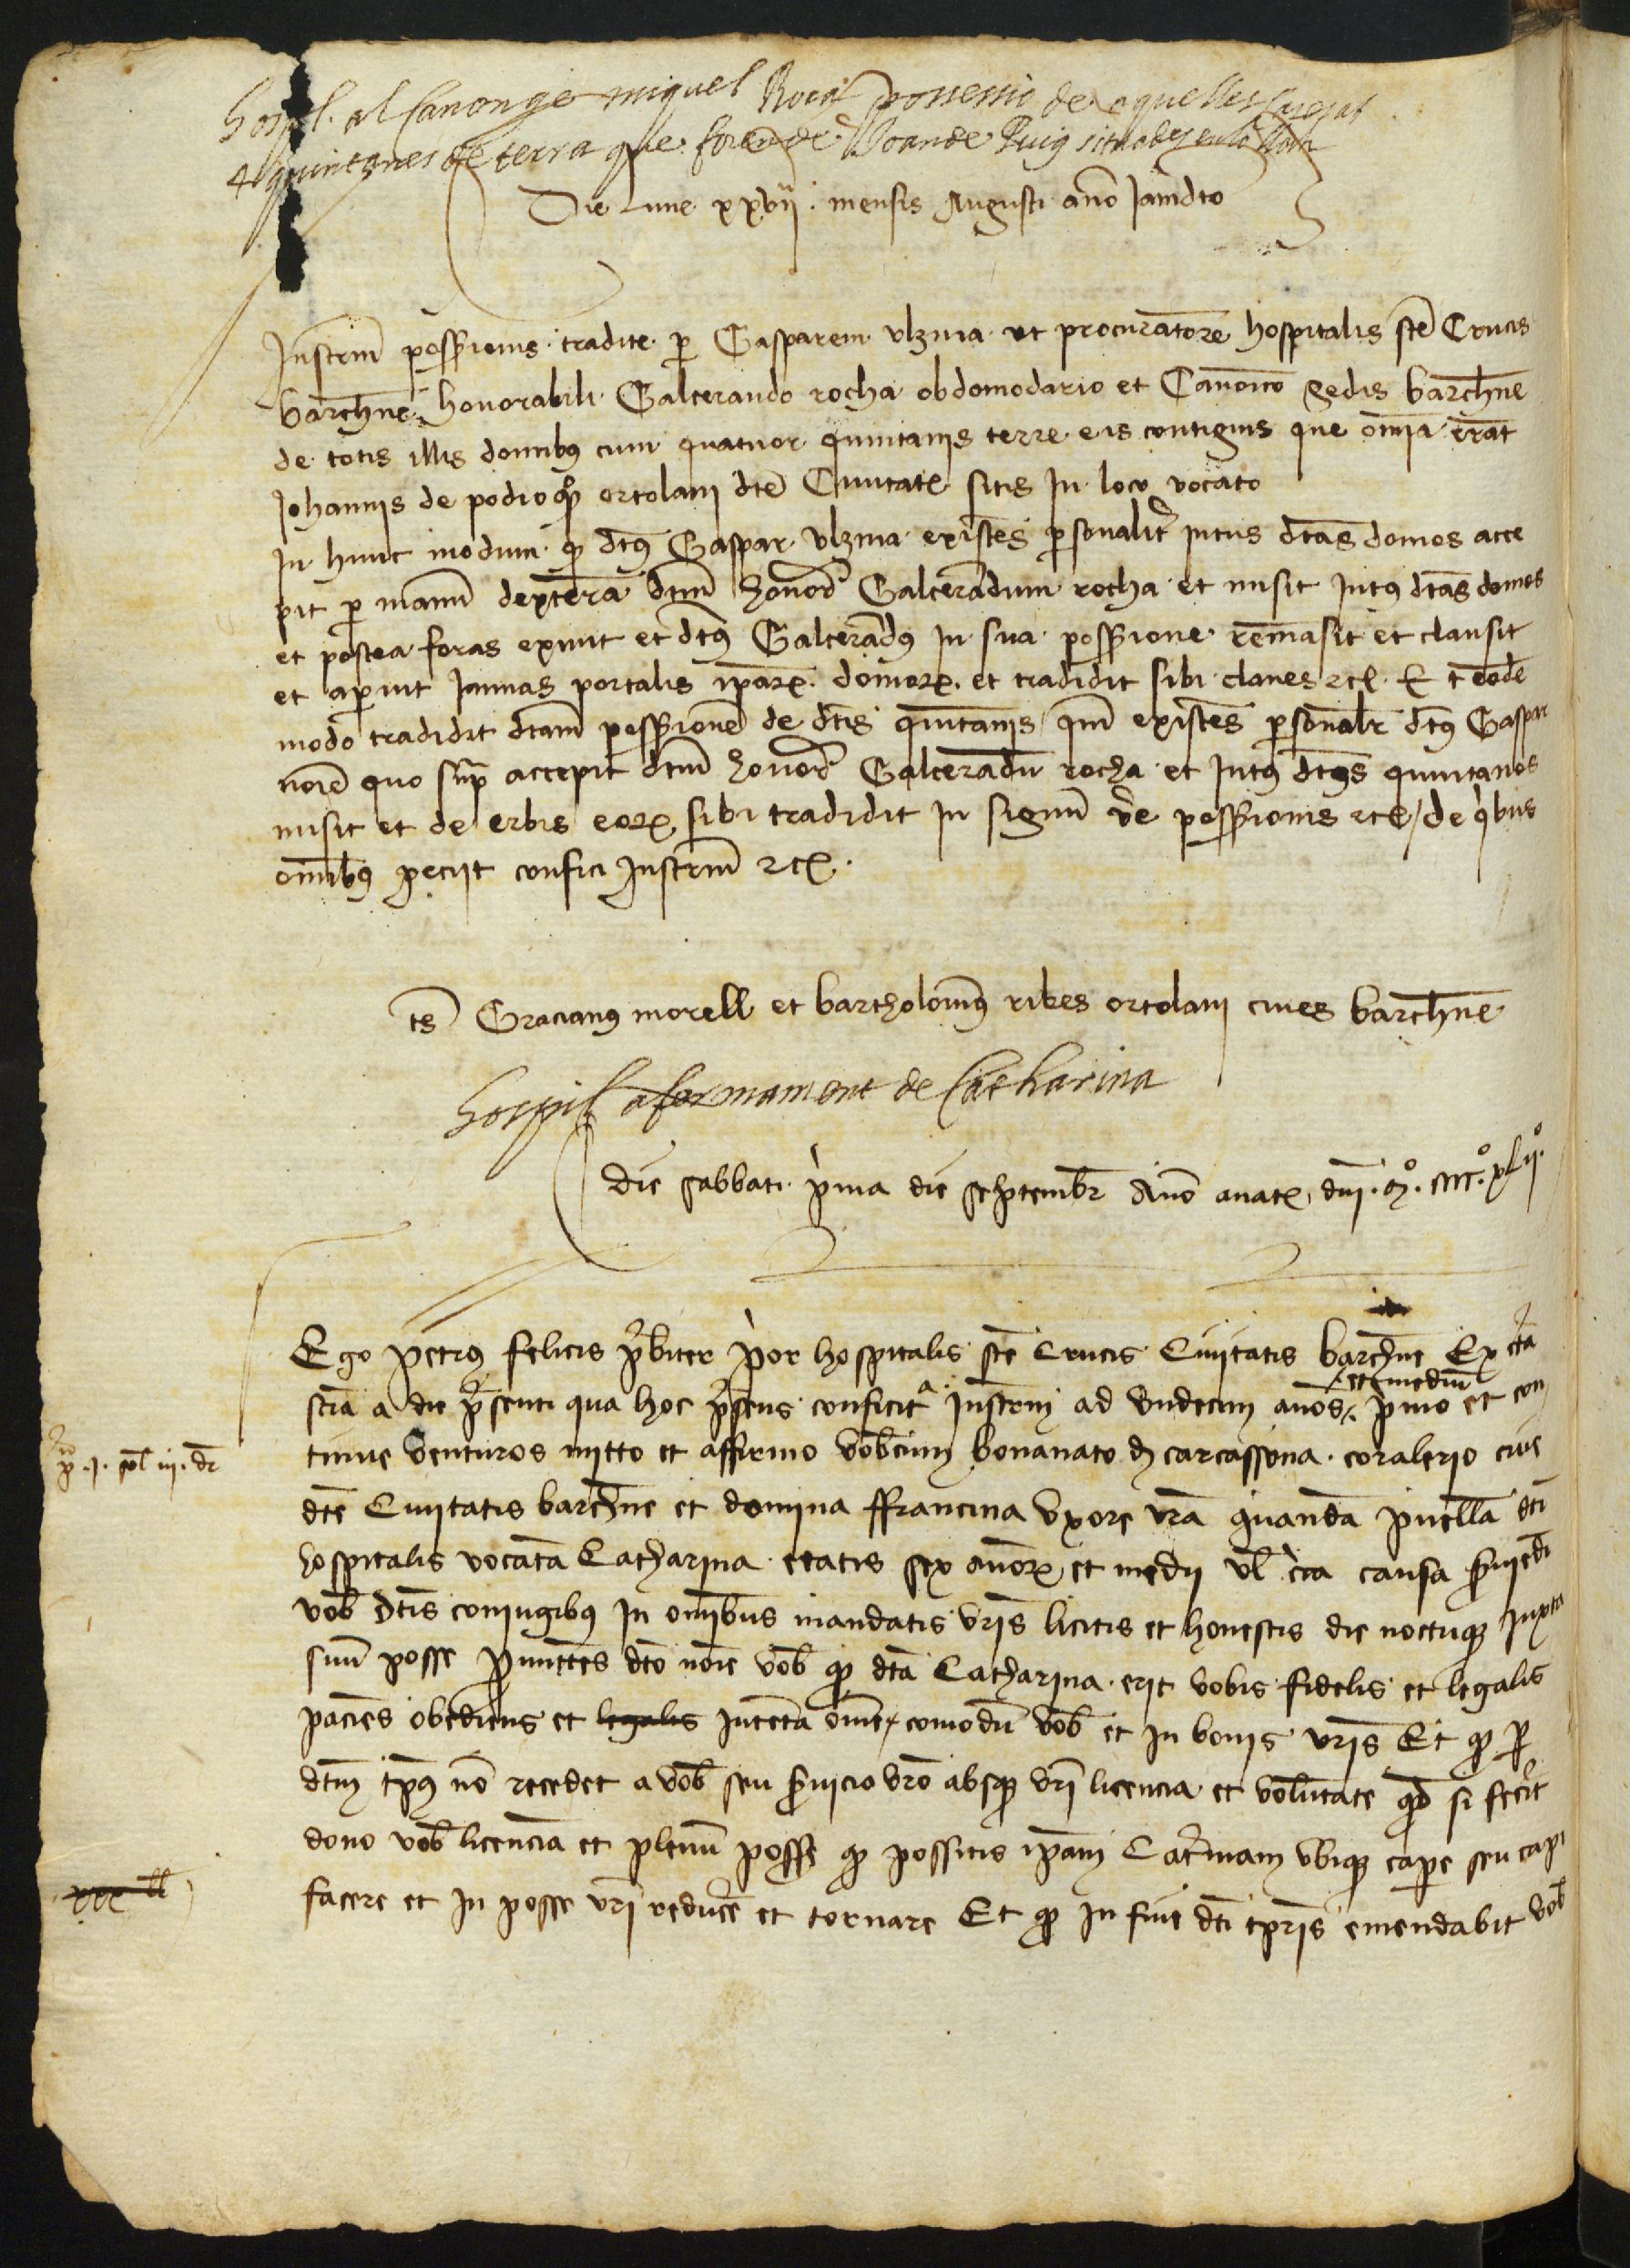 hospl. al Canonge miquel Rocha possessio de aquelles cases ab
4 quintanes de terra que foren de Joan de Puig situades en lo
Die lune xxvij mensis Augusti año jamdto
Instrm possessionis tradite per Gasparem ulzina ut procuratore hospitalis ste Crucis
barchne honorabili Galcerando rocha obdomodario et Canonico sedis barchne
de totis illis domibus cum quatuor quintanis terre eis contiguis que omnia erant
Johannis de podio qo ortolani dte Civitatis sitis in loco vocato
in hunc modum q dtus Gaspar Ulzina existes personalit intus dtas domos acce
pit per manu dextera dtm honor Galcerandum rocha et misit intus dtas domos
et postea foras exivit et dtus Galcerandus in sua possessione remasit et clausit
et aperuit januas portalis ipar domor et tradidit sibi claves etc Et eode
modo tradidit dtam possessione de dtis quintanis qm existes personalr dtus Gaspar
noie quo supra accepit dtm honor Galcerandu rocha et intus dtas quintanas
misit et de erbis eor sibi tradidit in signu vere possessionis etc / de quibus
omnibus peciit confici instrm etc
ts Gracianus morell et bartholomeus ribes ortolani cives barchne
hospil afermament de Catharina
Die sabbati prima die septembr Año a natx dni Mo CCCCo xlijo
Ego petrus felicis prbiter prior hospitalis ste Crucis Civitatis barchne Ex certa
et medium
scia a die presenti qua hoc presens conficitur instrm ad undecim años primo et con
tinue venturos mitto et affirmo vobcum bonanato de carcassona coralerio cive
p j sol iij dr
dte Civitatis barchne et domina ffrancina uxore vra quanda puella dti
hospitalis vocata Catharina etatis sex anorx et medij vl cca causa serviedi
vob dtis coniugibus in omnibus mandatis vris licitis et honestis die noctuque juxta
suu posse promittes dto noie vob q dta Catharina erit vobis fidelis et legalis
pacies obediens et legalis intenta omne comodu vob et in bonis vris Et q per
dtm tpus no recedet a vob seu servicio vro absque vri licencia et voluntate quod si fecerit
dono vob licencia et plenu posse q possitis ipam Catrinam ubique cape seu capi
facere et in posse vri reducere et tornare Et q in fine dti tpris emendabit vob